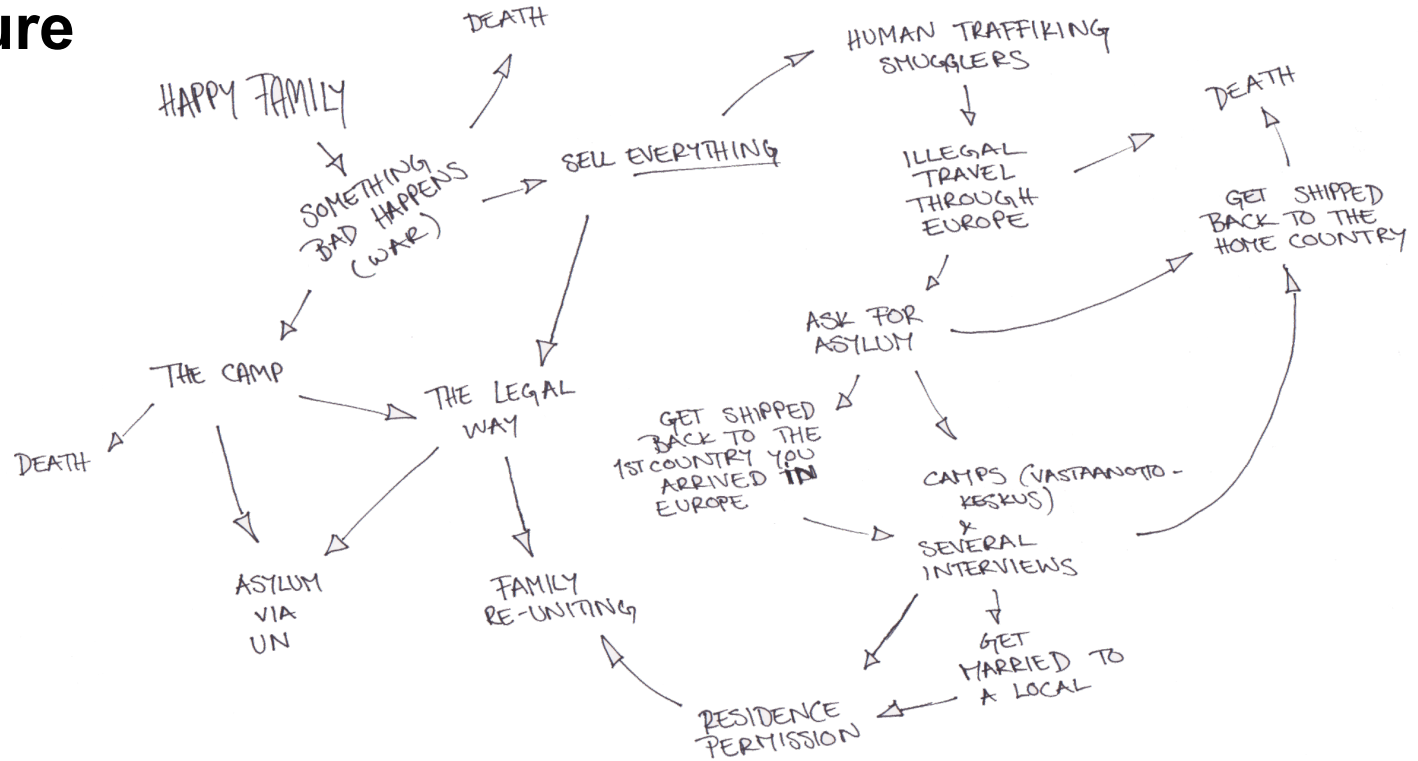 ure
DEATH
HAPPY FAMILY
SOMETHING
BAD HAPPENS
(WAR)
SELL EVERYTHING
HUMAN TRAFFIKING
SMUGGLERS
DEATH
ILLEGAL
TRAVEL
THROUGH
EUROPE
GET SHIPPED
BACK TO THE
HOME COUNTRY
ASK FOR
ASYLUM
THE CAMP
THE LEGAL
WAY
DEATH
GET SHIPPED
BACK TO THE
1ST COUNTRY YOU
ARRIVED IN
EUROPE
CAMPS (VASTAANOTTO-
KESKUS)
&
SEVERAL
INTERVIEWS
ASYLUM
VIA
UN
FAMILY
RE-UNITING
GET
MARRIED TO
A LOCAL
RESIDENCE
PERMISSION